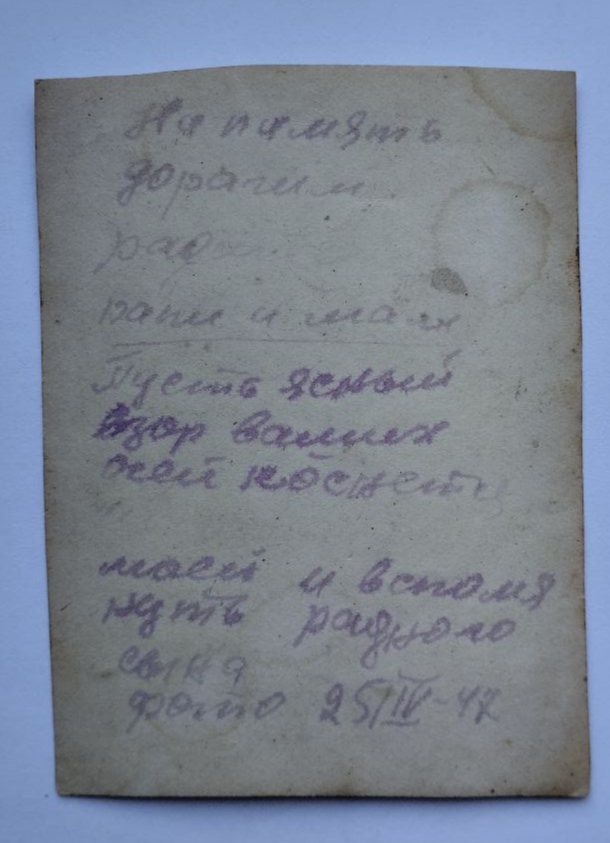 На память
дорагим
папи и мами
Пусть ясный
взор ваших
очей коснетц
маей и вспомя
нуть радного
сына
фото 25/IV-47